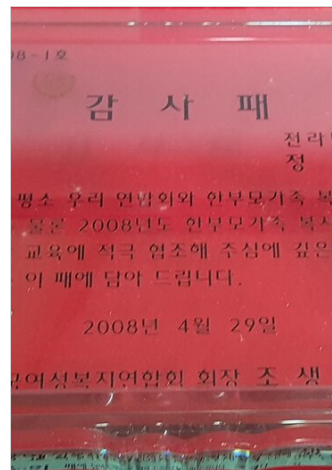 08-1호
감 사 패
전라
정
평소 우리 연합회와 한부모가족 복
물론 2008년도 한부모가족 복지
교육에 적극 협조해 주심에 깊은
이 패에 담아 드립니다.
2008년 4월 29일
국여성복지연합회 회장 조 생